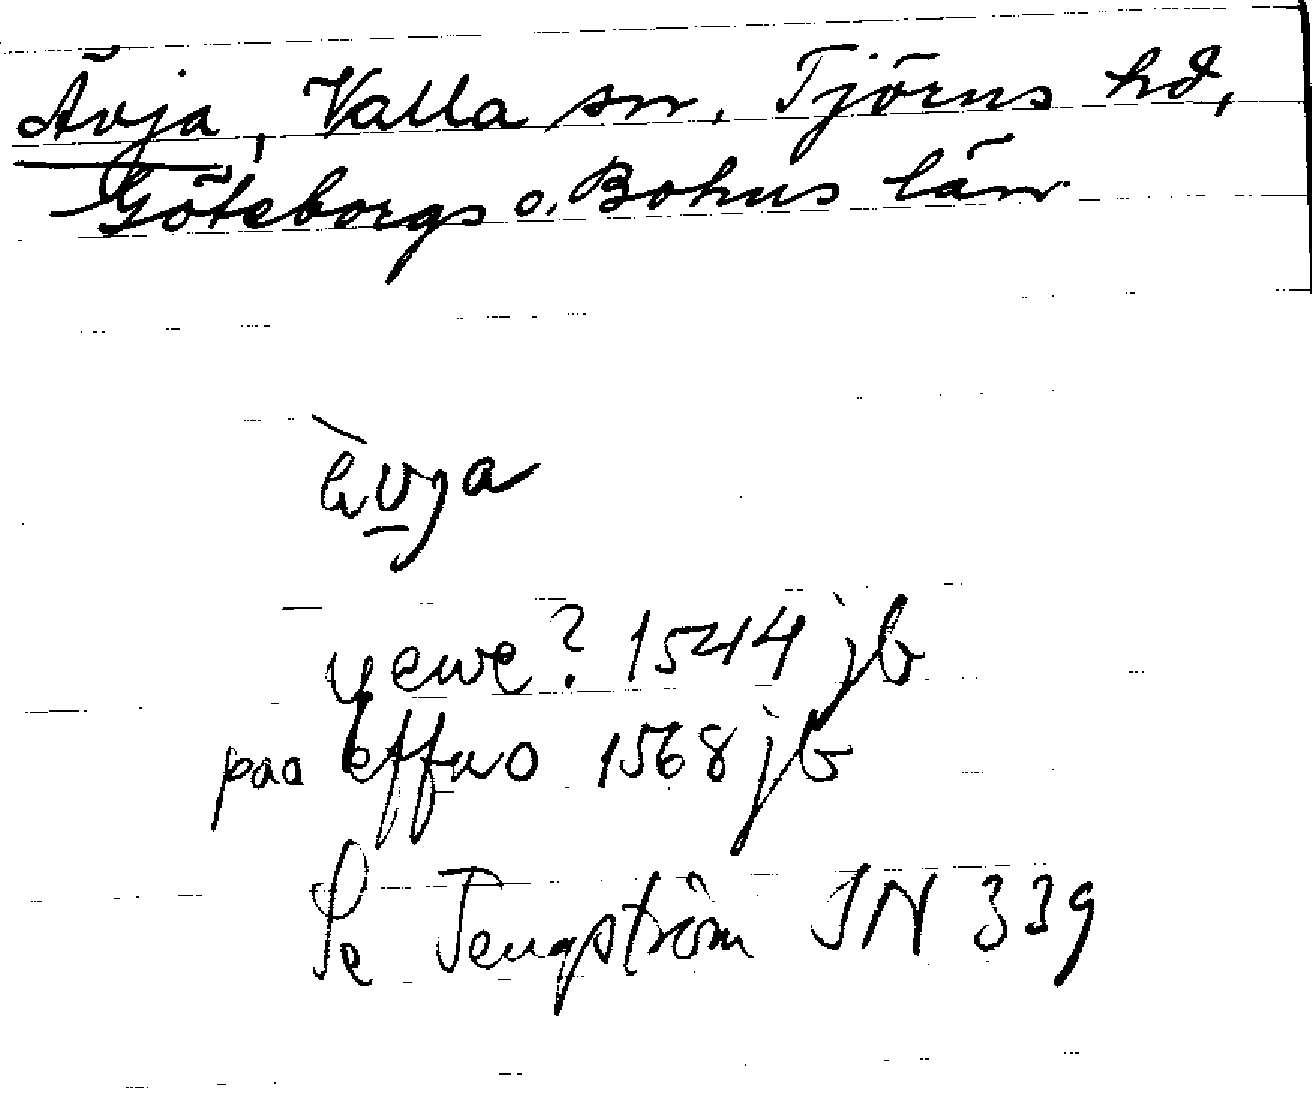 Ävja, Valla sn, Tjörns hd,
Göteborgs o. Bohus län
èvja
1544 jb
paa 1568 jb
Se Tengström IN 339